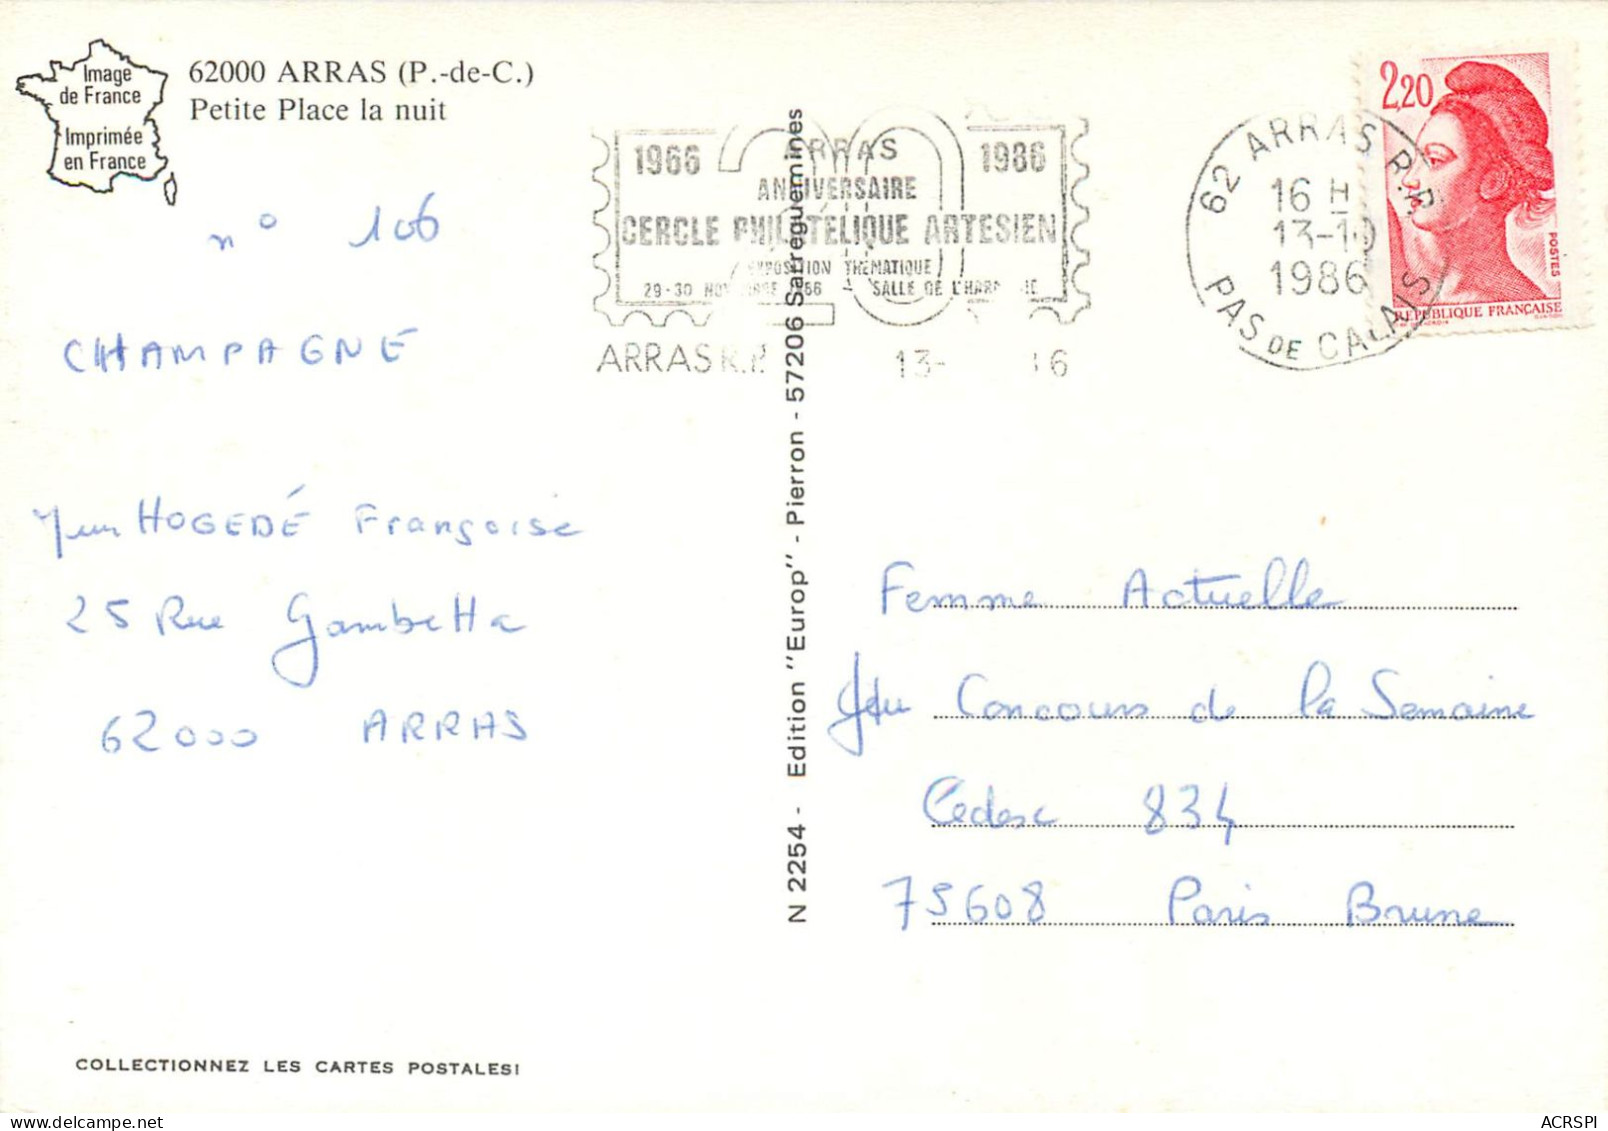 Image
de France
Imprimée
en France
62000 ARRAS (P.-de-C.)
Petite Place la nuit
n° 106
CHAMPAGNE
HOGEDÉ Françoise
25 Rue Gambetta
62000 ARRAS
COLLECTIONNEZ LES CARTES POSTALES!
N 2254 - Edition "Europ" - Pierron - 57206 Sarreguemines
1966 ARRAS 1986
20
ANNIVERSAIRE
CERCLE PHILATÉLIQUE ARTESIEN
EXPOSITION THÉMATIQUE
29-30 SALLE DE
ARRAS R.P. 13-
62 ARRAS R.P.
16 H
13-10
1986
PAS DE CALAIS
2,20
POSTES
REPUBLIQUE FRANÇAISE
Femme Actuelle
Jeu Concours de la Semaine
Cedex 834
75608 Paris Brune
ACRSPI